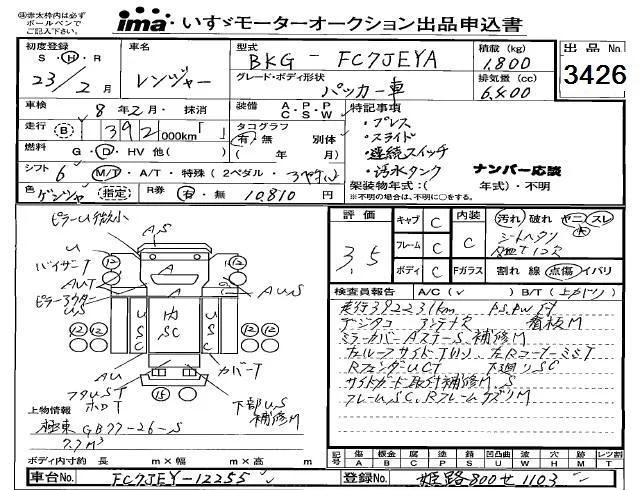 ㊟赤太枠内は必ず
ボールペンで
ご記入下さい。
ima いすゞモーターオークション出品申込書
初度登録
S・H・R
23/2月
車名
レンジャー
型式
BKG - FC7JEYA
グレード・ボディ形状
パッカー車
積載(kg)
1,800
排気量(cc)
6,400
出品No
3426
車検 8年2月・抹消
装備 A.P.P
C.S.W
特記事項
・プレス
・スライド
・連続スイッチ
・汚水タンク
ナンバー応談
走行(B) 392 000km「 」
タコグラフ
有・無 別体
(年 月)
燃料 G・D・HV 他( )
シフト 6 M/T・A/T・特殊(2ペダル・
色 ゲンジャ 指定
R券 有・無 10,810円
架装物年式:( 年式)・不明
※不明の場合は、不明に○をする。
ピラーU微小
U
バイザーT
AUT
ピラーアウター
US
A
A
A
内
SC
USC
USC
12
12
12
12
AUS
AU
カバーT
フタUST
ホロT
15
下部US
補修M
上物情報
極東 GB77-26-S
7.7M³
ボディ内寸約 長 m×幅 m×高 m
評価
3.5
キャブ C
フレーム C
ボディ C
内装 C
Fガラス
汚れ 破れ ヤニ スレ
シートヘタリ
割れ 線 点傷 イバリ
検査員報告 A/C(✓) B/T(上カバリ)
走行392231km P.S.PW
デジタコ アンテナ欠 看板M
ミラーカバーAステーS、補修M
左ルーフサイドT凹リ 左RコーナーミラーT
RフェンダーUCT 下廻りSC
サイドガード取付補修M、S
フレームSC、RフレームケズリM
記号
傷 A
板金 B
腐 C
塗 P
錆 S
凹凸曲 U
波 W
穴 H
跡 M
レツ割 T
車台No. FC7JEY-12255
登録No. 姫路800せ1103